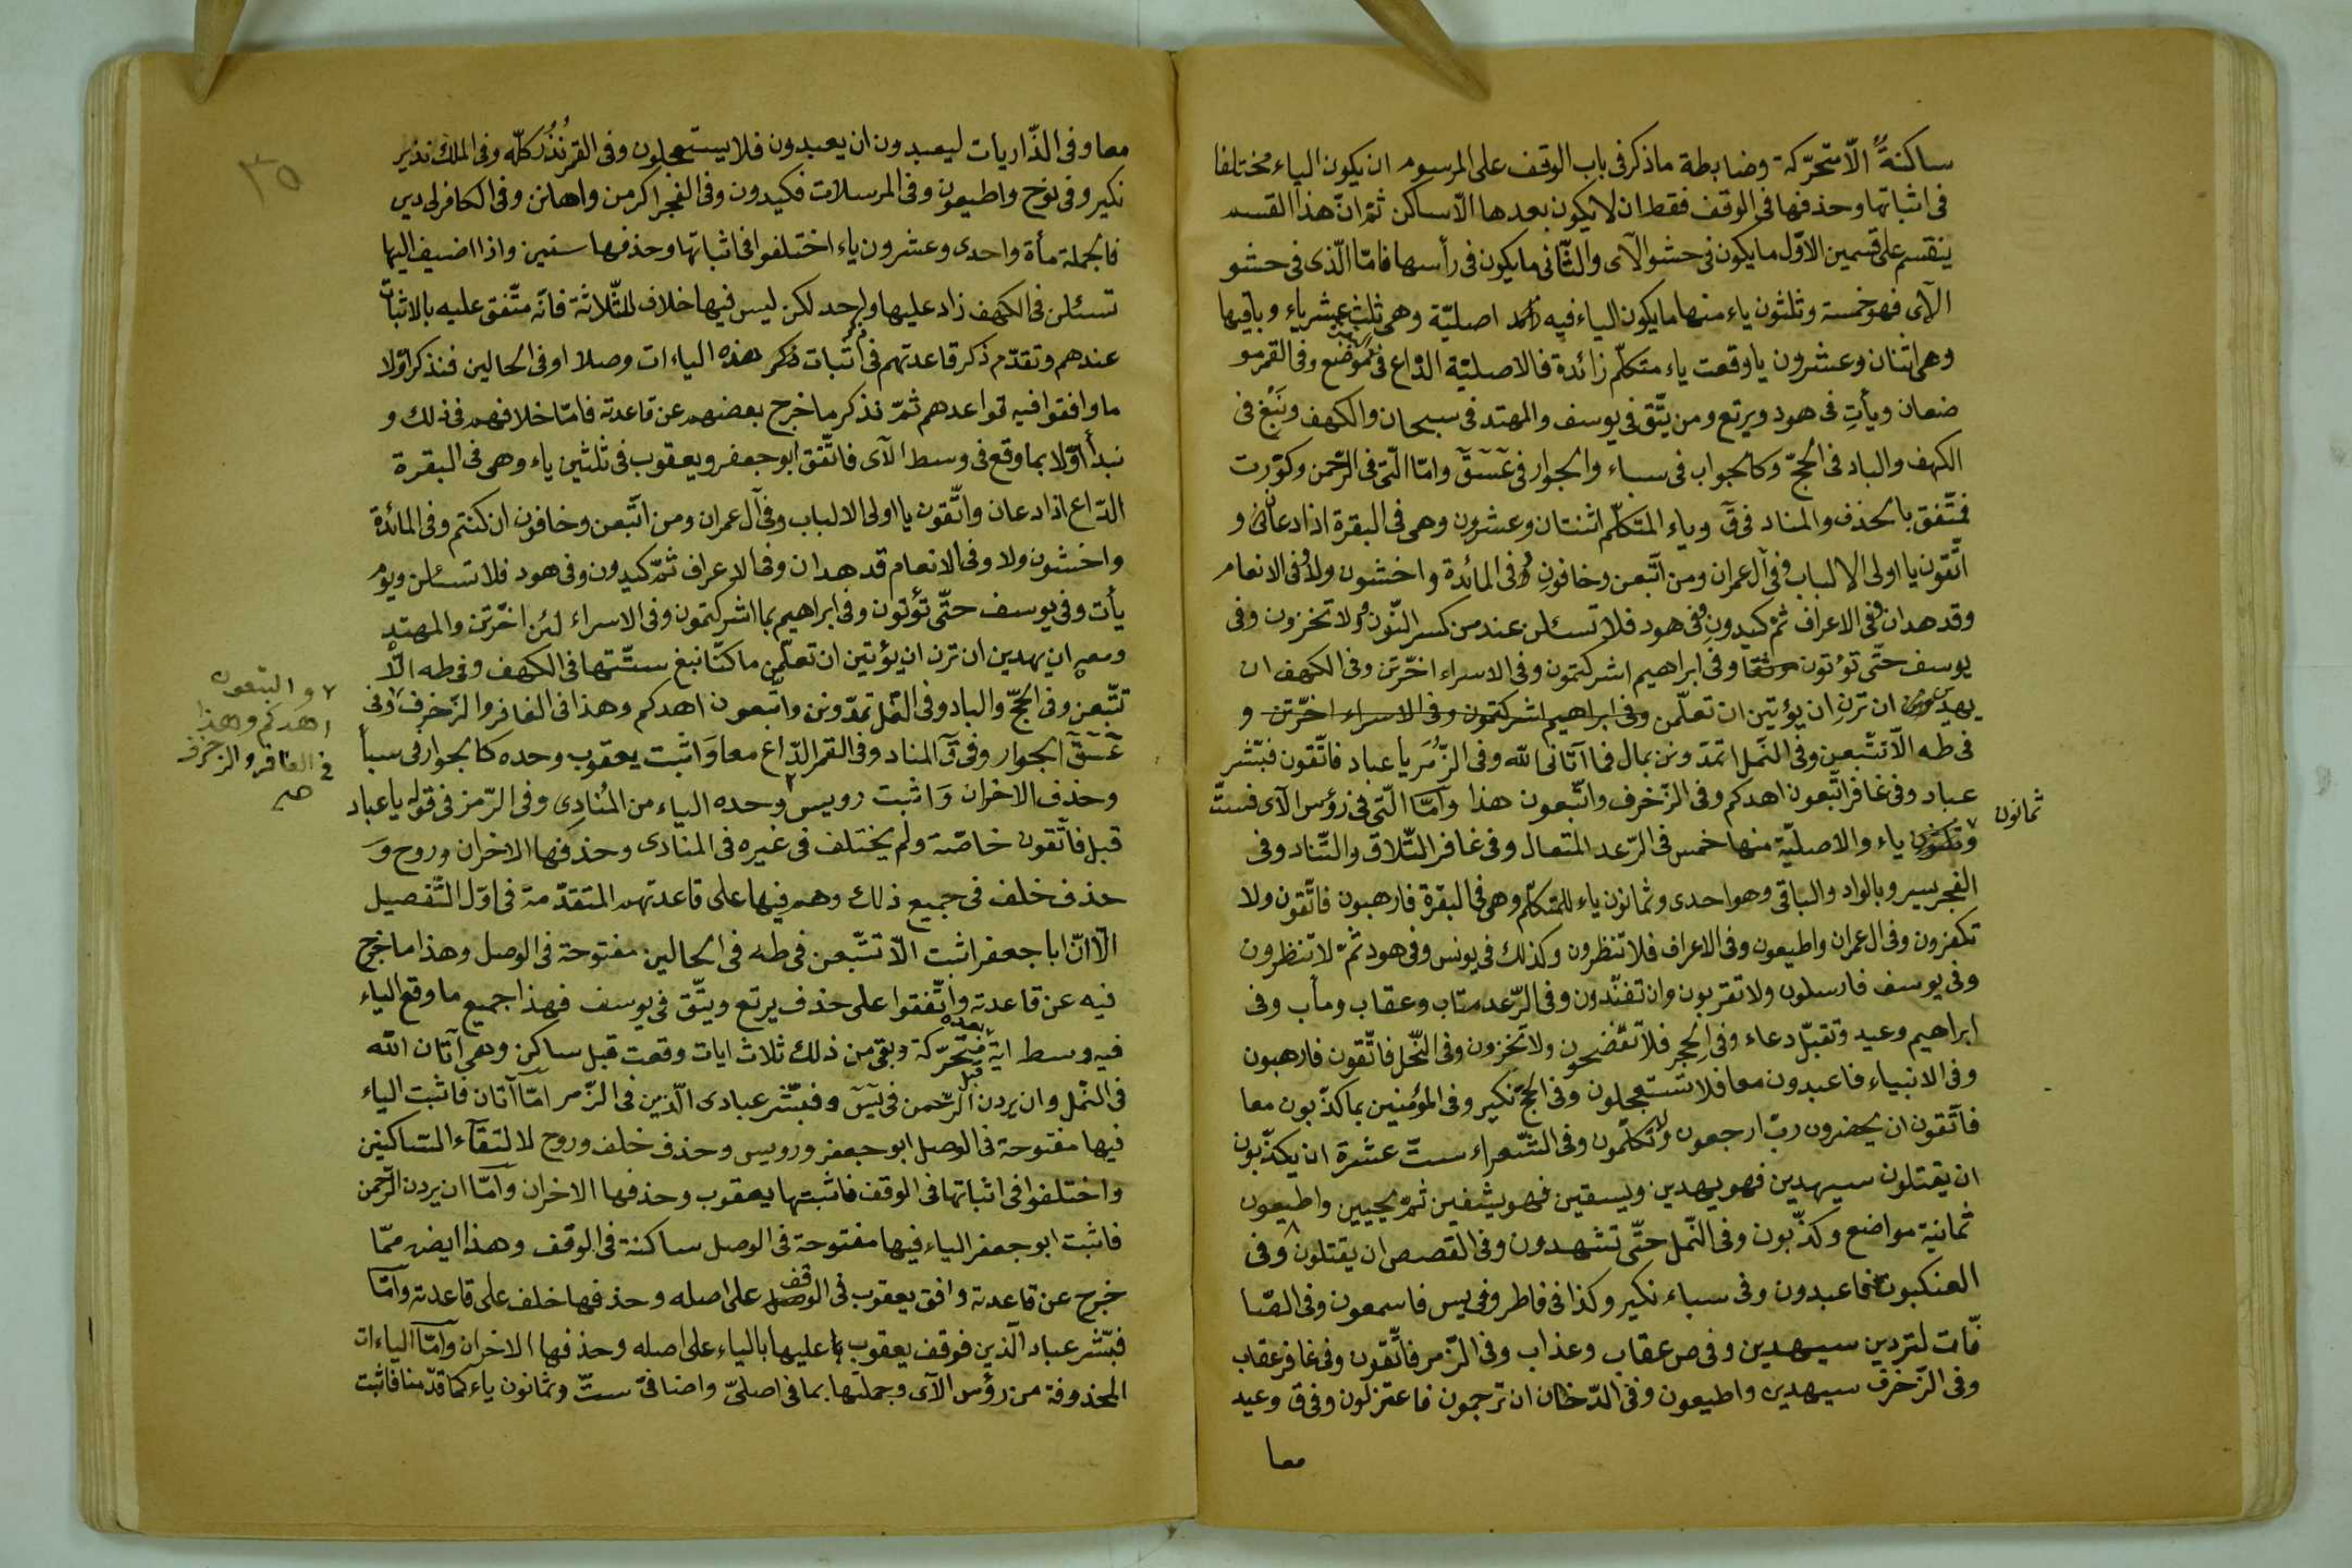 ساكنةً الّا متحرّكة وضابطة ماذكر فى باب الوقف على المرسوم ان يكون الياء مختلفا
فى اثباتها وحذفها فى الوقف فقط ان لا يكون بعدها الّا ساكن ثمّ انّ هذا القسم
ينقسم على قسمين الاوّل ما يكون فى حشو الآى والثّانى ما يكون فى رأسها فامّا الّذى فى حشو
الآى فهو خمسة وثلثون ياء منها ما يكون الياء فيه اصليّة وهى ثلث عشر ياء وباقيها
وهى اثنان وعشرون يا وقعت ياء متكلّم زائدة فالاصليّة الدّاع فى موضع وفى القمر مو
ضعان ويأتِ فى هود ويرتع ومن يتّق فى يوسف والمهتد فى سبحان والكهف ونَبْغ فى
الكهف والباد فى الحجّ وكالجواب فى سباء والجوار فى عٓسٓقٓ وامّا الّتى فى الرّحمن وكوّرت
فمتّفق بالحذف والمناد فى قٓ وياء المتكلّم اثنتان وعشرون وهى فى البقرة اذا دعان و
اتّقون يا اولى الالباب وفى آل عمران ومن اتّبعن وخافون وفى المائدة واخشون ولا وفى الانعام
وقد هدان وفى الاعراف ثمّ كيدون وفى هود فلا تسئلن عند من كسر النّون ولا تخزون وفى
يوسف حتّى تؤتون موثقا وفى ابراهيم اشركتمون وفى الاسراء اخّرتن وفى الكهف ان
يهدين ان ترن ان يؤتين ان تعلّمن وفى ابراهيم اشركتمون وفى الاسراء اخّرتن و
فى طه الّا تتّبعن وفى النّمل اتمدّونن بمال فما آتانى الله وفى الزّمر يا عباد فاتّقون فبشّر
عباد وفى غافر اتّبعون اهدكم وفى الزّخرف واتّبعون هذا وامّا الّتى فى رؤس الآى فستّ
ثمانون
ياء والاصليّة منها خمس فى الرّعد المتعال وفى غافر التّلاق والتّناد وفى
الفجر يسر وبالواد والباقى وهو احدى وثمانون ياء للمتكلّم وهى فى البقرة فارهبون فاتّقون ولا
تكفرون وفى ال عمران واطيعون وفى الاعراف فلا تنظرون وكذلك فى يونس وفى هود ثمّ لا تنظرون
وفى يوسف فارسلون ولا تقربون وان تفنّدون وفى الرّعد متاب وعقاب ومأب وفى
ابراهيم وعيد وتقبّل دعاء وفى الحجر فلا تفضحون ولا تخزون وفى النّحل فاتّقون فارهبون
وفى الانبياء فاعبدون معا فلا تستعجلون وفى الحجّ نكير وفى المؤمنين بما كذّبون معا
فاتّقون ان يحضرون ربّ ارجعون ولا تكلّمون وفى الشّعراء ستّ عشرة ان يكذّبون
ان يقتلون سيهدين فهو يهدين ويسقين فهو يشفين ثمّ يحيين واطيعون
ثمانية مواضع وكذّبون وفى النّمل حتّى تشهدون وفى القصص ان يقتلون وفى
العنكبوت فاعبدون وفى سباء نكير وكذا فى فاطر وفى يس فاسمعون وفى الصّا
فّات لتردين سيهدين وفى ص عقاب وعذاب وفى الزّمر فاتّقون وفى غافر عقاب
وفى الزّخرف سيهدين واطيعون وفى الدّخان ان ترجمون فاعتزلون وفى ق وعيد
معا
٣٥
معا وفى الذّاريات ليعبدون ان يعبدون فلا يستعجلون وفى القمر نُذُر كلّه وفى الملك نذير
نكير وفى نوح واطيعون وفى المرسلات فكيدون وفى الفجر اكرمن واهانن وفى الكافر لى دين
فالجملة مأة واحدى وعشرون ياء اختلفوا فى اثباتها وحذفها واذا اضيف اليها
تسئلن فى الكهف زاد عليها واحد لكن ليس فيها خلاف للثّلاثة فانّه متّفق عليه بالاثبات
عندهم وتقدّم ذكر قاعدتهم فى اثبات ذكر هذه الياءات وصلا او فى الحالين فنذكر اوّلا
ما وافقوا فيه قواعدهم ثمّ نذكر ما خرج بعضهم عن قاعدته فامّا خلافهم فى ذلك و
نبدأ اوّلا بما وقع فى وسط الآى فاتّفق ابو جعفر ويعقوب فى ثلثين ياء وهى فى البقرة
الدّاع اذا دعان واتّقون يا اولى الالباب وفى آل عمران ومن اتّبعن وخافون ان كنتم وفى المائدة
واخشون ولا وفى الانعام قد هدان وفى الاعراف ثمّ كيدون وفى هود فلا تسئلن ويوم
يأت وفى يوسف حتّى تؤتون وفى ابراهيم بما اشركتمون وفى الاسراء لئن اخّرتن والمهتد
ومعه ان يهدين ان ترن ان يؤتين ان تعلّمن ما كنّا نبغ ستّتها فى الكهف وفى طه الّا
تتّبعن وفى الحجّ والباد وفى النّمل تمدّونن واتّبعون اهدكم وهذا فى الغافر والزّخرف وفى
واتّبعون
اهدكم وهذا
فى الغافر والزّخرف
صح
عٓسٓقٓ الجوار وفى قٓ المناد وفى القمر الدّاع معا واثبت يعقوب وحده كالجوار فى سبأ
وحذف الاخران وَاثبت رويس وحده الياء من المُنادِى وفى الزّمر فى قوله يا عباد
قبل فاتّقون خاصّة ولم يختلف فى غيره فى المنادى وحذفها الاخران وروح وَ
حذف خلف فى جميع ذلك وهم فيها على قاعدتهم المتقدّمة فى اوّل التّفصيل
الّا انّ ابا جعفر اثبت الّا تتّبعن فى طه فى الحالين مفتوحة فى الوصل وهذا ما خرج
فيه عن قاعدته واتّفقوا على حذف يرتع ويتّق فى يوسف فهذا جميع ما وقع الياء
فيه وسط اية بعده متحرّكة وبقى من ذلك ثلاث ايات وقعت قبل ساكن وهى آتان الله
فى النّمل وان يردن الرّحمن فى يٓسٓ وفبشّر عبادى الّذين فى الزّمر امّا آتان فاثبت الياء
فيها مفتوحة فى الوصل ابو جعفر ورويس وحذف خلف وروح لالتقآء السّاكنين
واختلفوا فى اثباتها فى الوقف فاثبتها يعقوب وحذفها الاخران وامّا ان يردن الرّحمن
فاثبت ابو جعفر الياء فيها مفتوحة فى الوصل ساكنة فى الوقف وهذا ايض ممّا
خرج عن قاعدته وافق يعقوب فى الوقف على اصله وحذفها خلف على قاعدته وامّا
فبشّر عباد الّذين فوقف يعقوب عليها بالياء على اصله وحذفها الاخران وامّا الياءات
المحذوفة من رؤس الآى وجملتها بما فى اصلىّ واضافىّ ستّ وثمانون ياء كما قدّمنا فاثبت